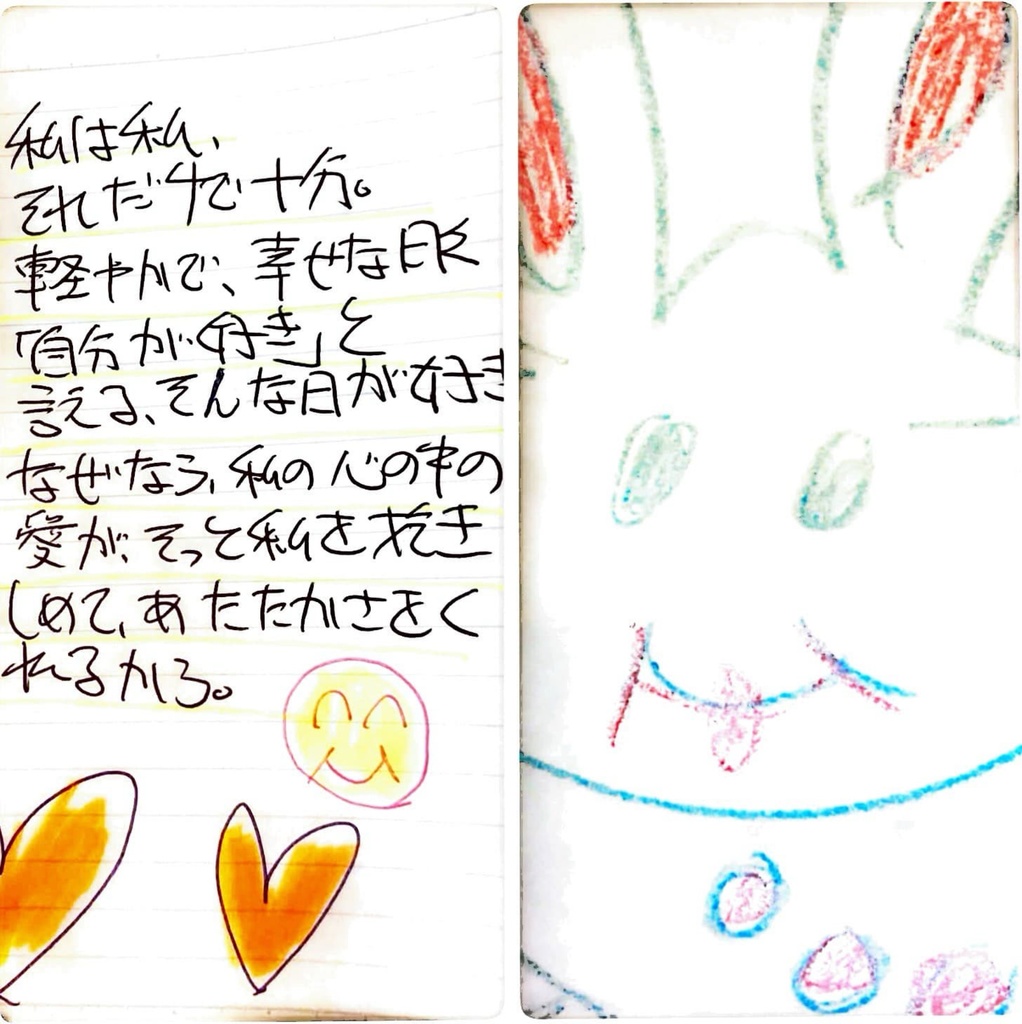 私は私、
それだけで十分。
軽やかで、幸せな眠
「自分が好き」と
言える、そんな日が好き
なぜなら、私の心の中の
愛が、そっと私を抱き
しめて、あたたかさをく
れるから。